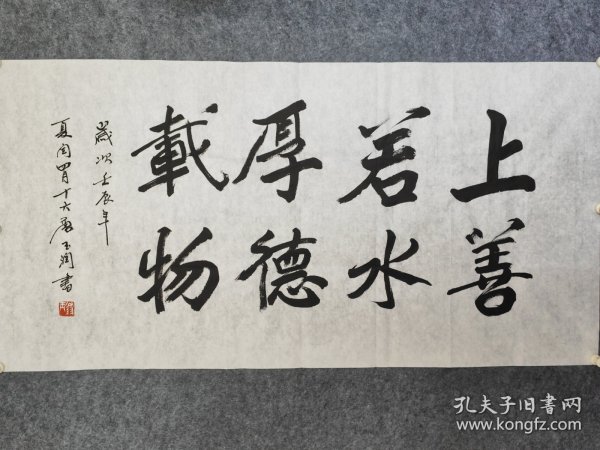 上善
若水
厚德
載物
歲次壬辰年
夏閏四月十六
玉潤書
孔夫子旧書网
www.kongfz.com